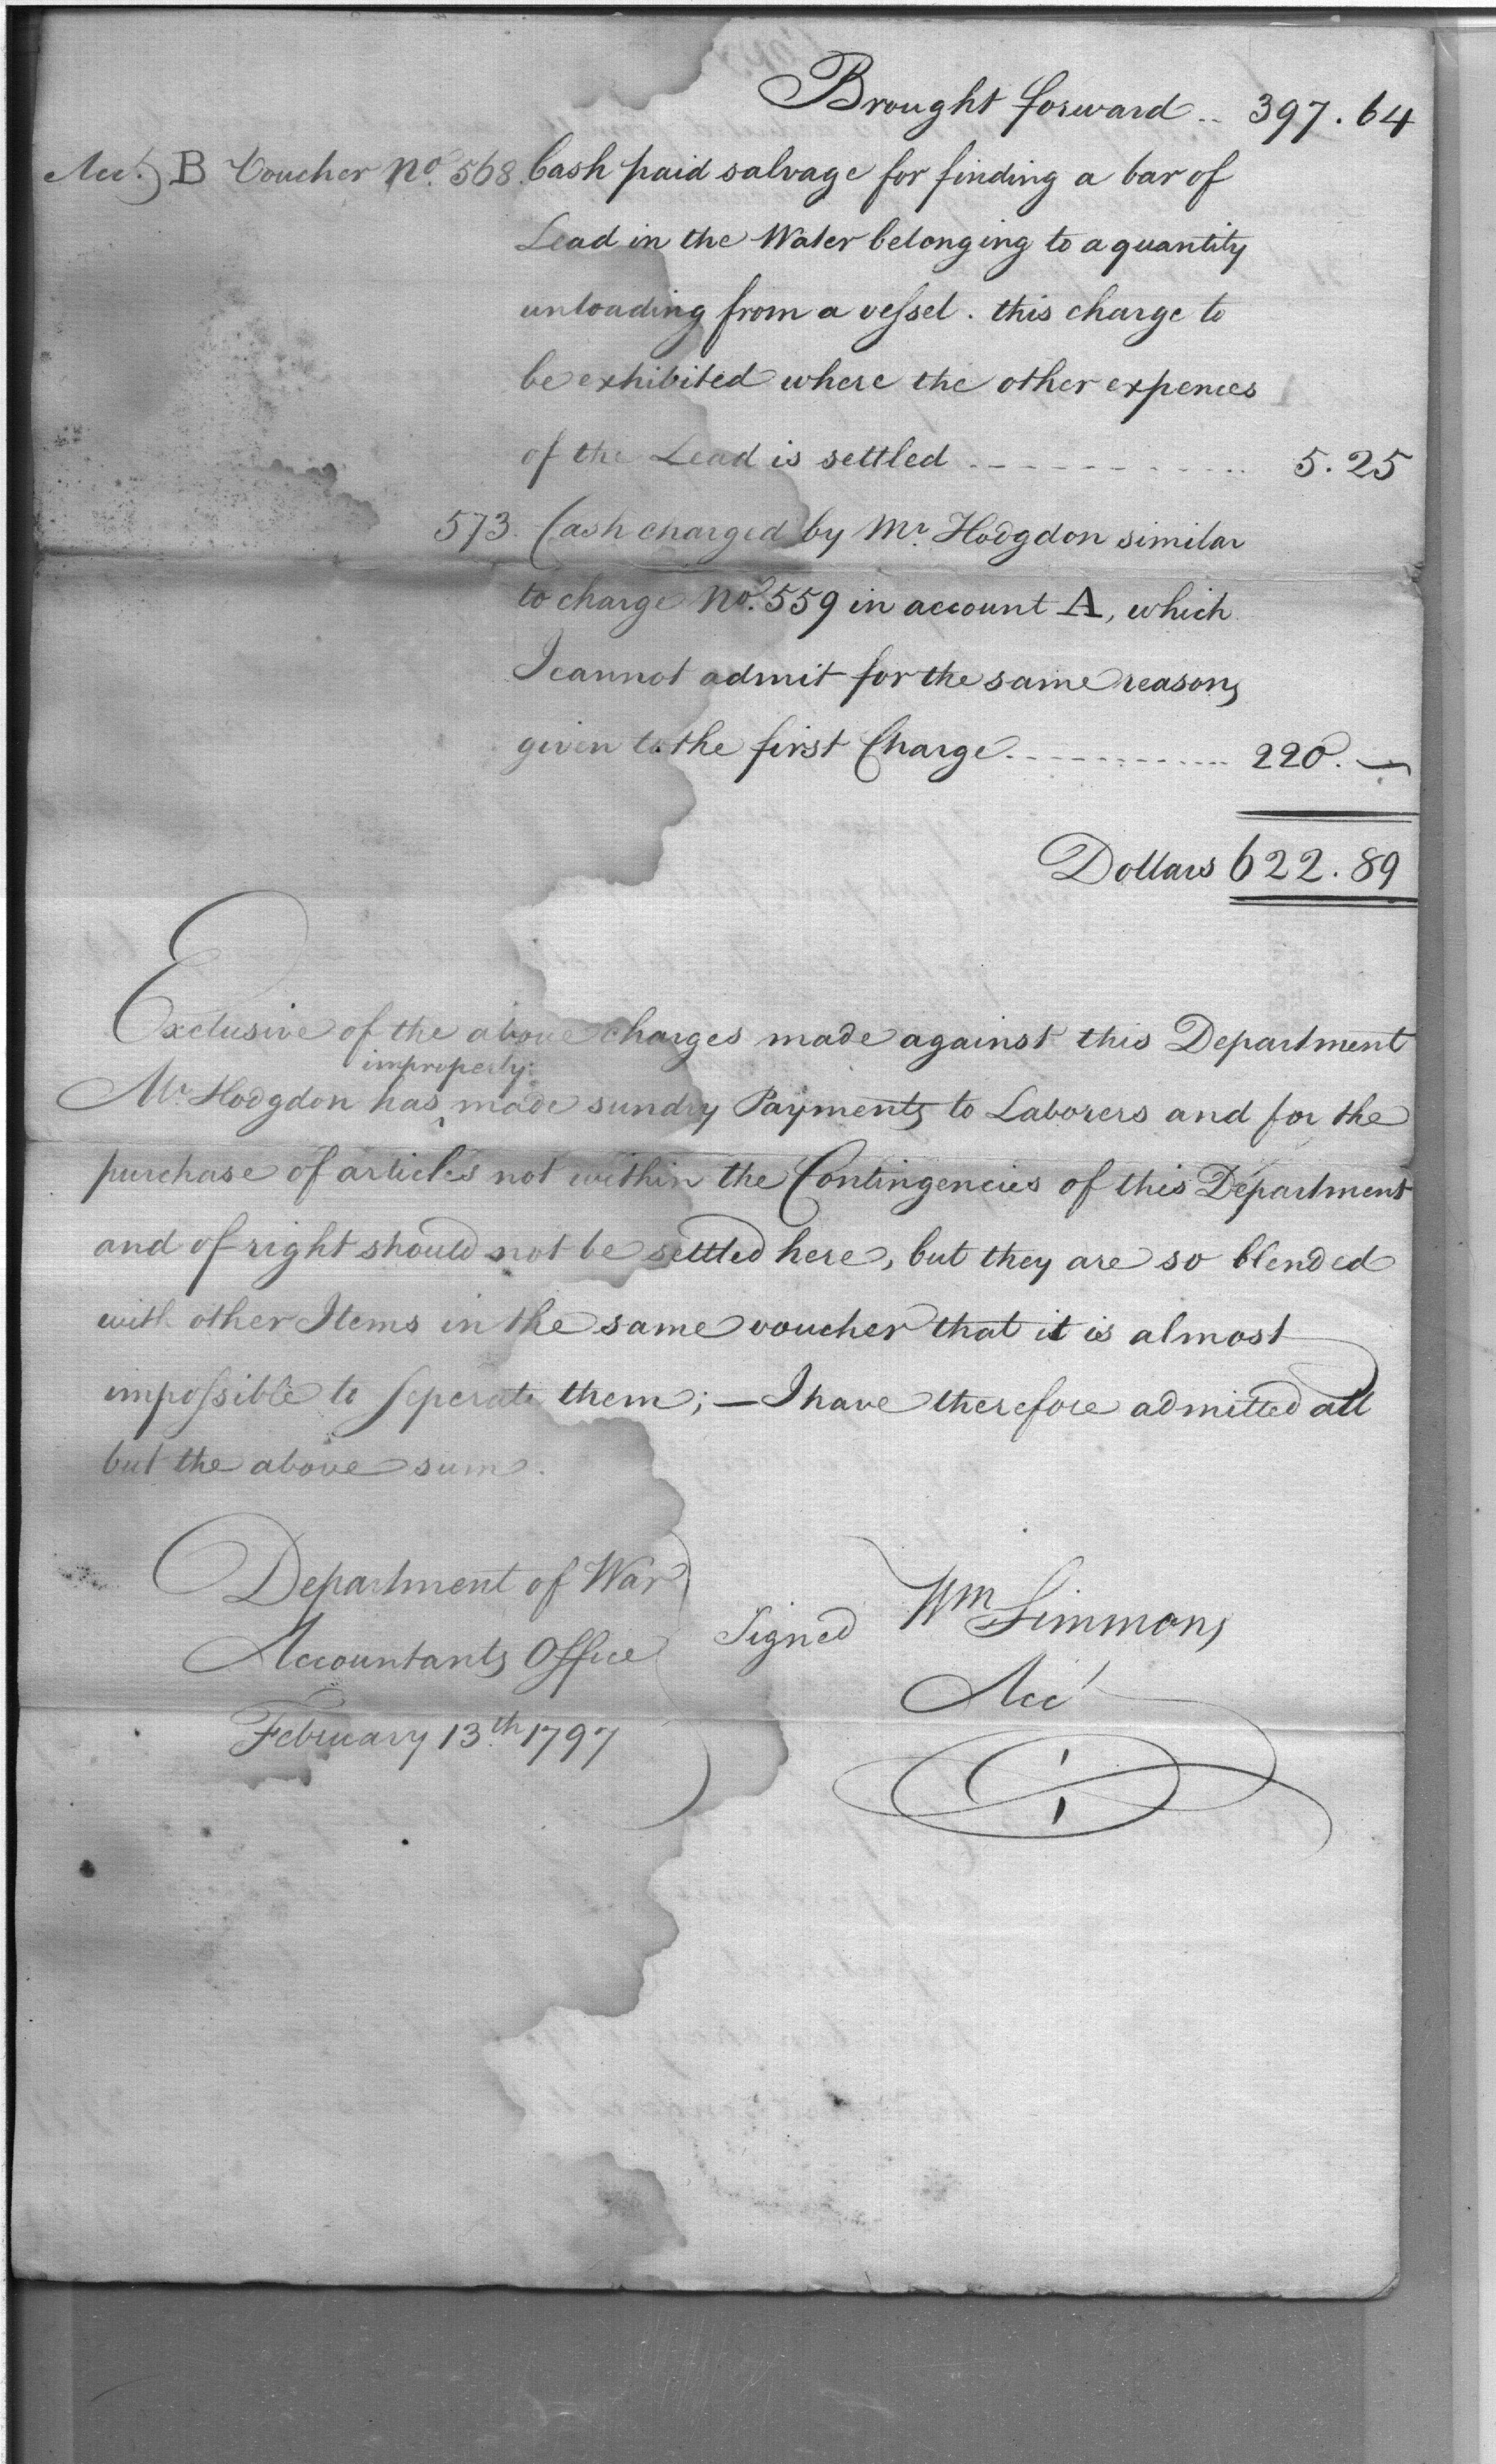 Brought forward .. 397.64
Acct. B Voucher No. 568. Cash paid salvage for finding a bar of
Lead in the Water belonging to a quantity
unloading from a vessel. this charge to
be exhibited where the other expences
of the Lead is settled ............ 5.25
573. Cash charged by Mr. Hodgdon similar
to charge No. 559 in account A, which
I cannot admit for the same reasons
given to the first Charge ............ 220. —
Dollars 622.89
Exclusive of the above charges made against this Department
improperly
Mr. Hodgdon has ^ made sundry Payments to Laborers and for the
purchase of articles not within the Contingencies of this Department
and of right should not be settled here, but they are so blended
with other Items in the same voucher that it is almost
impossible to seperate them; — I have therefore admitted all
but the above sum.
Department of War
Accountants Office
February 13.th 1797
Signed Wm Simmons
Acct